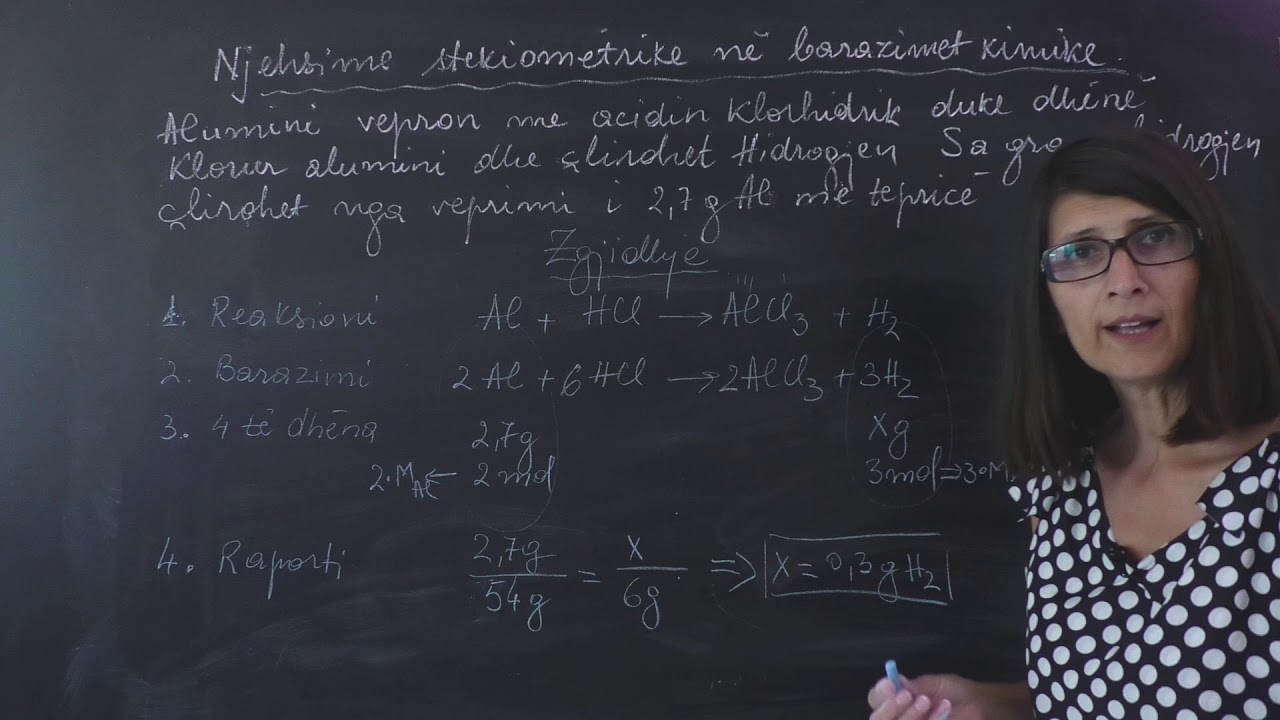 Njehsime stekiometrike në barazimet kimike.
Alumini vepron me acidin Klorhidrik duke dhënë
Klorur alumini dhe çlirohet Hidrogjen Sa
çlirohet nga veprimi i 2,7 g Al me tepricë
Zgjidhje
1. Reaksioni Al + HCl → AlCl₃ + H₂
2. Barazimi 2Al + 6HCl → 2AlCl₃ + 3H₂
3. 4 të dhëna 2,7g xg
2·M_Al ← 2 mol 3mol ⇒ 3·M
4. Raporti 2,7g/54g = x/6g ⇒ x = 0,3g H₂